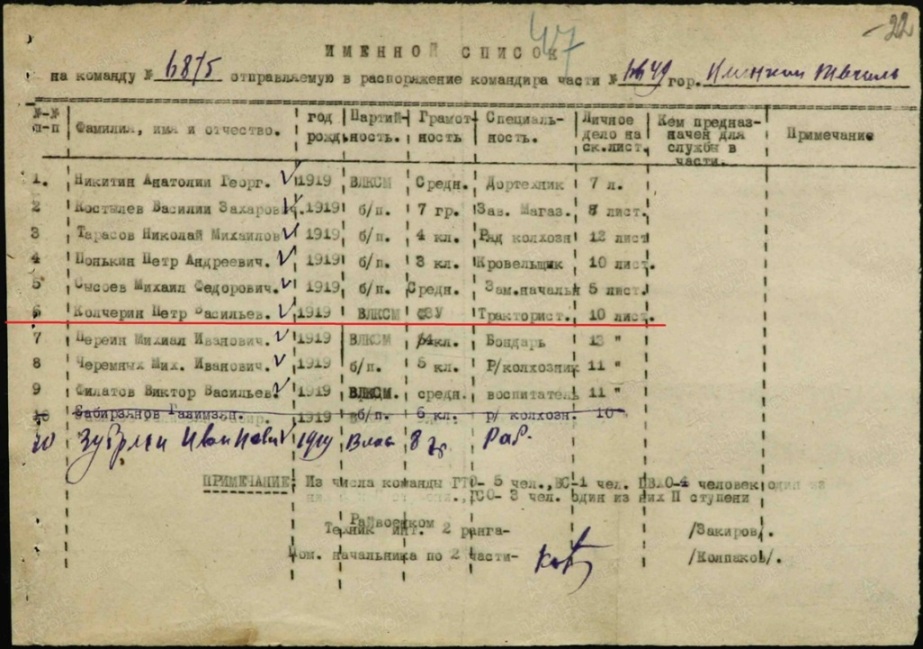 47
22
ИМЕННОЙ СПИСОК
на команду № 6875 отправляемую в распоряжение командира части № гор.
№№ п-п Фамилия, имя и отчество. год рожд. Партий-ность. Грамот-ность Специаль-ность. Личное дело на ск.лист. Кем предназ-начен для службы в части. Примечание
1. Никитин Анатолий Георг. 1919 ВЛКСМ Средн. Дортехник 7 л.
2 Костылев Василий Захаров. 1919 б/п. 7 гр. Зав. Магаз. 8 лист.
3 Тарасов Николай Михайлов 1919 б/п. 4 кл. Ряд колхозн 12 лист
4 Понькин Петр Андреевич. 1919 б/п. 3 кл. Кровельщик 10 лист.
5 Сысоев Михаил Федорович. 1919 б/п. Средн. Зам.начальн 5 лист.
6 Колчерин Петр Васильев. 1919 ВЛКСМ ФЗУ Тракторист. 10 лист.
7 Иванович. 1919 ВЛКСМ кл. Бондарь 13 "
8 Черемных Мих. Иванович. 1919 б/п. 5 кл. Р/колхозник 11 "
9 Филатов Виктор Васильев. 1919 ВЛКСМ. средн. воспитатель 11 "
10 Сабирзянов Галимзян. 1919 б/п. 6 кл. р/ колхозн. 10 "
10 1919 8 Раб.
ПРИМЕЧАНИЕ: Из числа команды ГТО- 5 чел., ВС-1 чел. ПВХО-4 человек один
ГСО- 3 чел. один из них II ступени
Райвоенком
Техник инт. 2 ранга- /Закиров/.
Пом. начальника по 2 части- /Колпаков/.